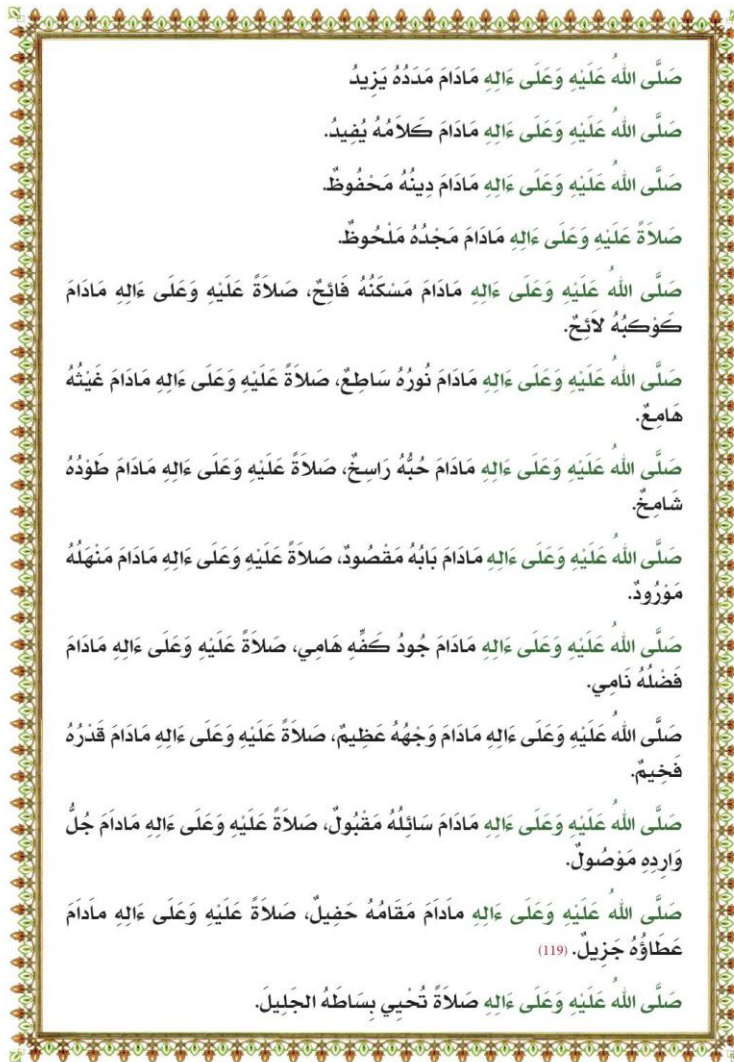 صَلَّى اللهُ عَلَيْهِ وَعَلَى ءَالِهِ مَادَامَ مَدَدُهُ يَزِيدُ
صَلَّى اللهُ عَلَيْهِ وَعَلَى ءَالِهِ مَادَامَ كَلاَمُهُ يُفِيدُ.
صَلَّى اللهُ عَلَيْهِ وَعَلَى ءَالِهِ مَادَامَ دِينُهُ مَحْفُوظٌ.
صَلاَةً عَلَيْهِ وَعَلَى ءَالِهِ مَادَامَ مَجْدُهُ مَلْحُوظٌ.
صَلَّى اللهُ عَلَيْهِ وَعَلَى ءَالِهِ مَادَامَ مَسْكَنُهُ فَائِحٌ، صَلاَةً عَلَيْهِ وَعَلَى ءَالِهِ مَادَامَ
كَوْكَبُهُ لاَئِحٌ.
صَلَّى اللهُ عَلَيْهِ وَعَلَى ءَالِهِ مَادَامَ نُورُهُ سَاطِعٌ، صَلاَةً عَلَيْهِ وَعَلَى ءَالِهِ مَادَامَ غَيْثُهُ
هَامِعٌ.
صَلَّى اللهُ عَلَيْهِ وَعَلَى ءَالِهِ مَادَامَ حُبُّهُ رَاسِخٌ، صَلاَةً عَلَيْهِ وَعَلَى ءَالِهِ مَادَامَ طَوْدُهُ
شَامِخٌ.
صَلَّى اللهُ عَلَيْهِ وَعَلَى ءَالِهِ مَادَامَ بَابُهُ مَقْصُودٌ، صَلاَةً عَلَيْهِ وَعَلَى ءَالِهِ مَادَامَ مَنْهَلُهُ
مَوْرُودٌ.
صَلَّى اللهُ عَلَيْهِ وَعَلَى ءَالِهِ مَادَامَ جُودُ كَفِّهِ هَامِي، صَلاَةً عَلَيْهِ وَعَلَى ءَالِهِ مَادَامَ
فَضْلُهُ نَامِي.
صَلَّى اللهُ عَلَيْهِ وَعَلَى ءَالِهِ مَادَامَ وَجْهُهُ عَظِيمٌ، صَلاَةً عَلَيْهِ وَعَلَى ءَالِهِ مَادَامَ قَدْرُهُ
فَخِيمٌ.
صَلَّى اللهُ عَلَيْهِ وَعَلَى ءَالِهِ مَادَامَ سَائِلُهُ مَقْبُولٌ، صَلاَةً عَلَيْهِ وَعَلَى ءَالِهِ مَادَامَ جُلُّ
وَارِدِهِ مَوْصُولٌ.
صَلَّى اللهُ عَلَيْهِ وَعَلَى ءَالِهِ مَادَامَ مَقَامُهُ حَفِيلٌ، صَلاَةً عَلَيْهِ وَعَلَى ءَالِهِ مَادَامَ
عَطَاؤُهُ جَزِيلٌ. (119)
صَلَّى اللهُ عَلَيْهِ وَعَلَى ءَالِهِ صَلاَةً تُحْيِي بِسَاطَهُ الجَلِيلَ.